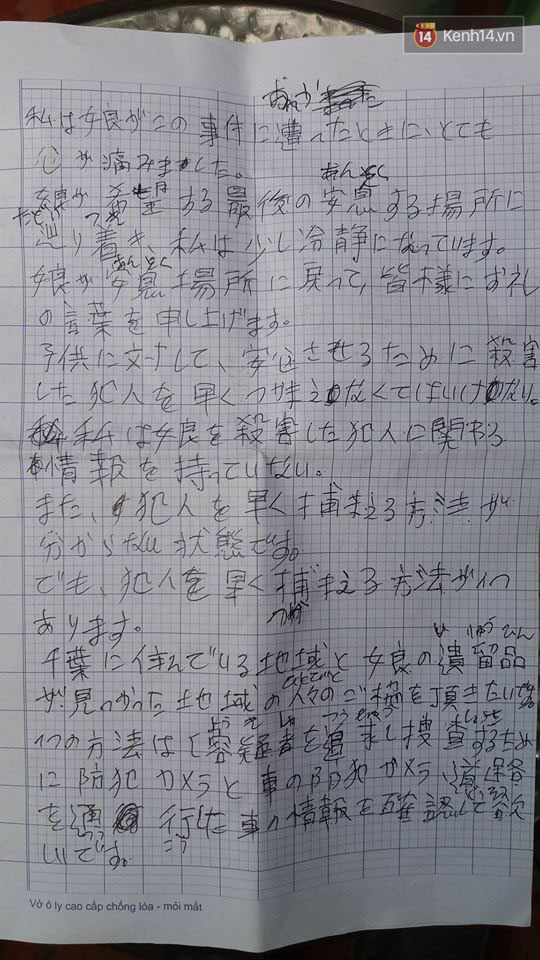 KENH
14 Kenh14.vn
私は娘がこの事件に遭ったときに、とても
心が痛みました。
あんそく
娘が希望する最後の安息する場所に
たど つ
辿り着き、私は少し冷静になっています。
あんそく
娘が安息場所に戻って、皆様にお礼
の言葉を申し上げます。
子供に対して、安心させるために殺害
した犯人を早くつかまえなくてはいけない。
私は娘を殺害した犯人に関わる
情報を持っていない。
また、犯人を早く捕まえる方法が
分からない状態です。
でも、犯人を早く捕まえる方法が1つ
つか
あります。
い りゅうひん
千葉に住んでいる地域と娘の遺留品
が見つかった地域の人々のご協力を頂きたいです。
ようぎしゃ ついせき
1つの方法は「容疑者を追求し捜査するため
に防犯カメラと車の防犯カメラ、道路
どうろ
を通行した車の情報を確認して欲
つうこう
しいです。
Vở ô ly cao cấp chống lóa - mỏi mắt